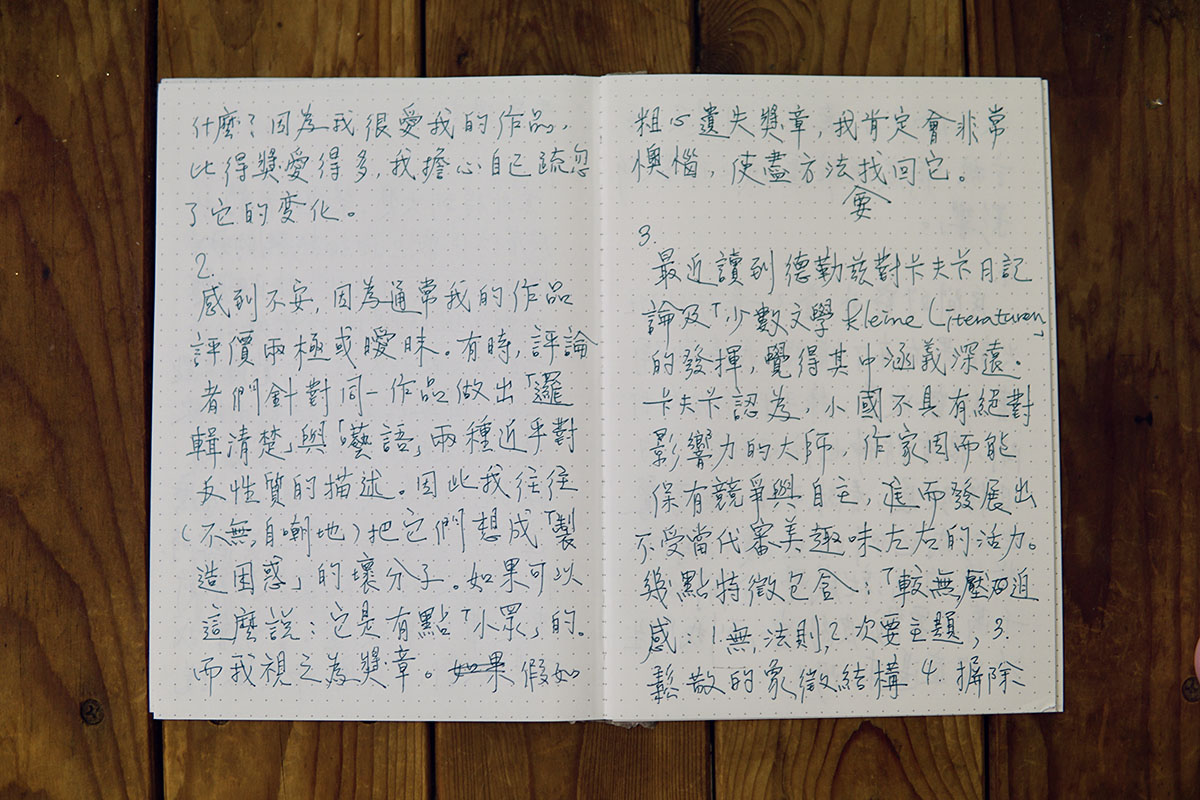 什麼？因為我很愛我的作品，
比得獎愛得多，我擔心自己疏忽
了它的變化。
2.
感到不安，因為通常我的作品
評價兩極或曖昧。有時，評論
者們針對同一作品做出「邏
輯清楚」與「囈語」兩種近乎對
反性質的描述。因此我往往
（不無自嘲地）把它們想成「製
造困惑」的壞分子。如果可以
這麼說：它是有點「小眾」的。
而我視之為獎章。如果 假如
粗心遺失獎章，我肯定會非常
懊惱，使盡方法找回它。
要
3.
最近讀到德勒茲對卡夫卡日記
論及「少數文學 kleine Literaturen」
的發揮，覺得其中涵義深遠。
卡夫卡認為，小國不具有絕對
影響力的大師，作家因而能
保有競爭與自主，進而發展出
不受當代審美趣味左右的活力。
幾點特徵包含：「較無壓迫
感：1.無法則，2.次要主題，3.
鬆散的象徵結構 4. 摒除